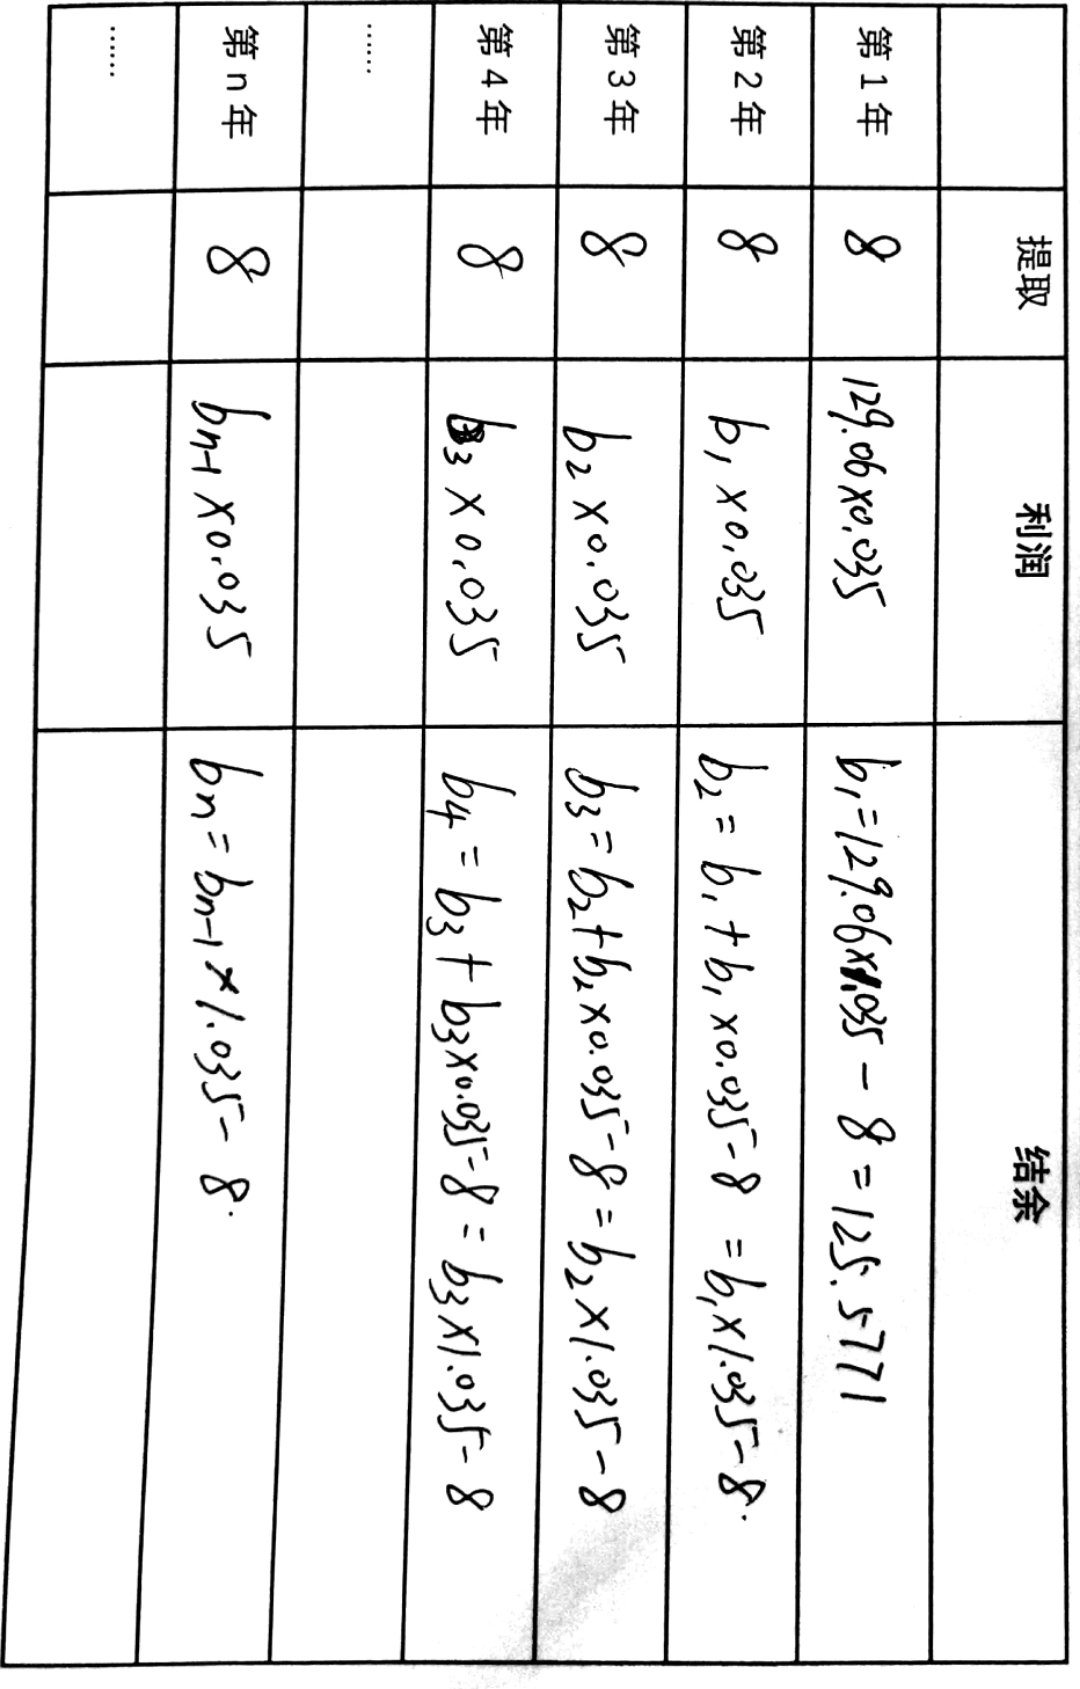 提取 利润 结余
第1年 8 129.06×0.035 b₁=129.06×1.035-8=125.5771
第2年 8 b₁×0.035 b₂=b₁+b₁×0.035-8=b₁×1.035-8.
第3年 8 b₂×0.035 b₃=b₂+b₂×0.035-8=b₂×1.035-8
第4年 8 b₃×0.035 b₄=b₃+b₃×0.035-8=b₃×1.035-8
……
第n年 8 bₙ₋₁×0.035 bₙ=bₙ₋₁×1.035-8.
……